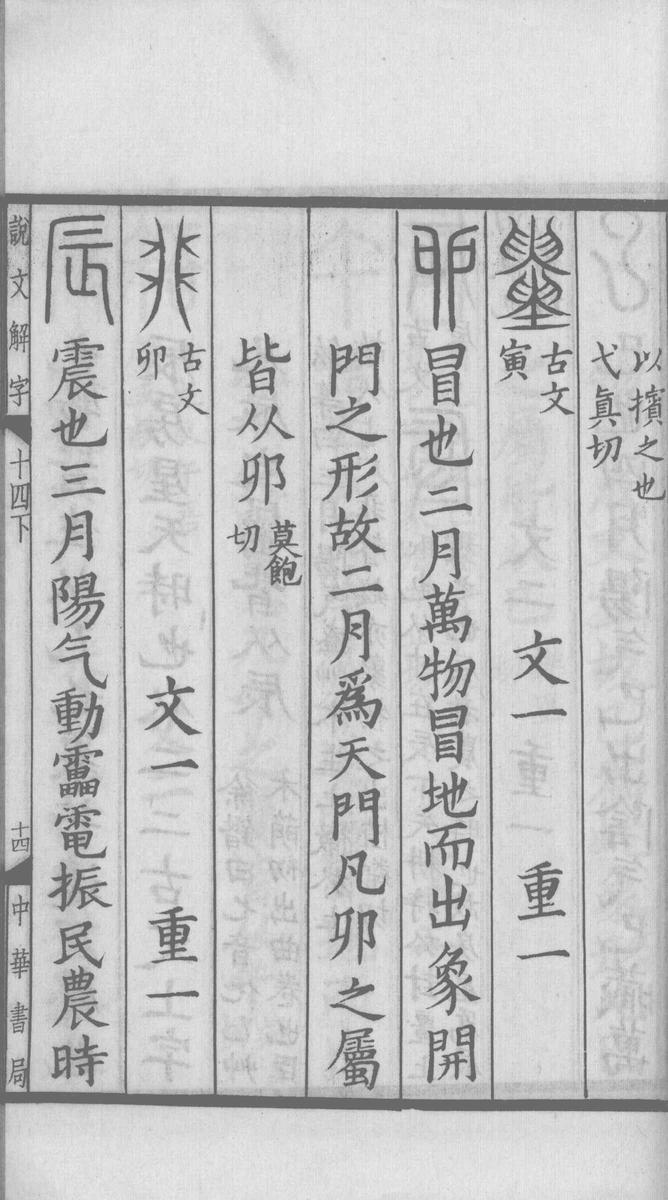 以擯之也
弋真切
古文
寅
文一 重一
冒也二月萬物冒地而出象開
門之形故二月爲天門凡卯之屬
皆从卯 莫飽
切
古文
卯
文一 重一
辰 震也三月陽气動靁電振民農時
說文解字 十四下 十四 中華書局